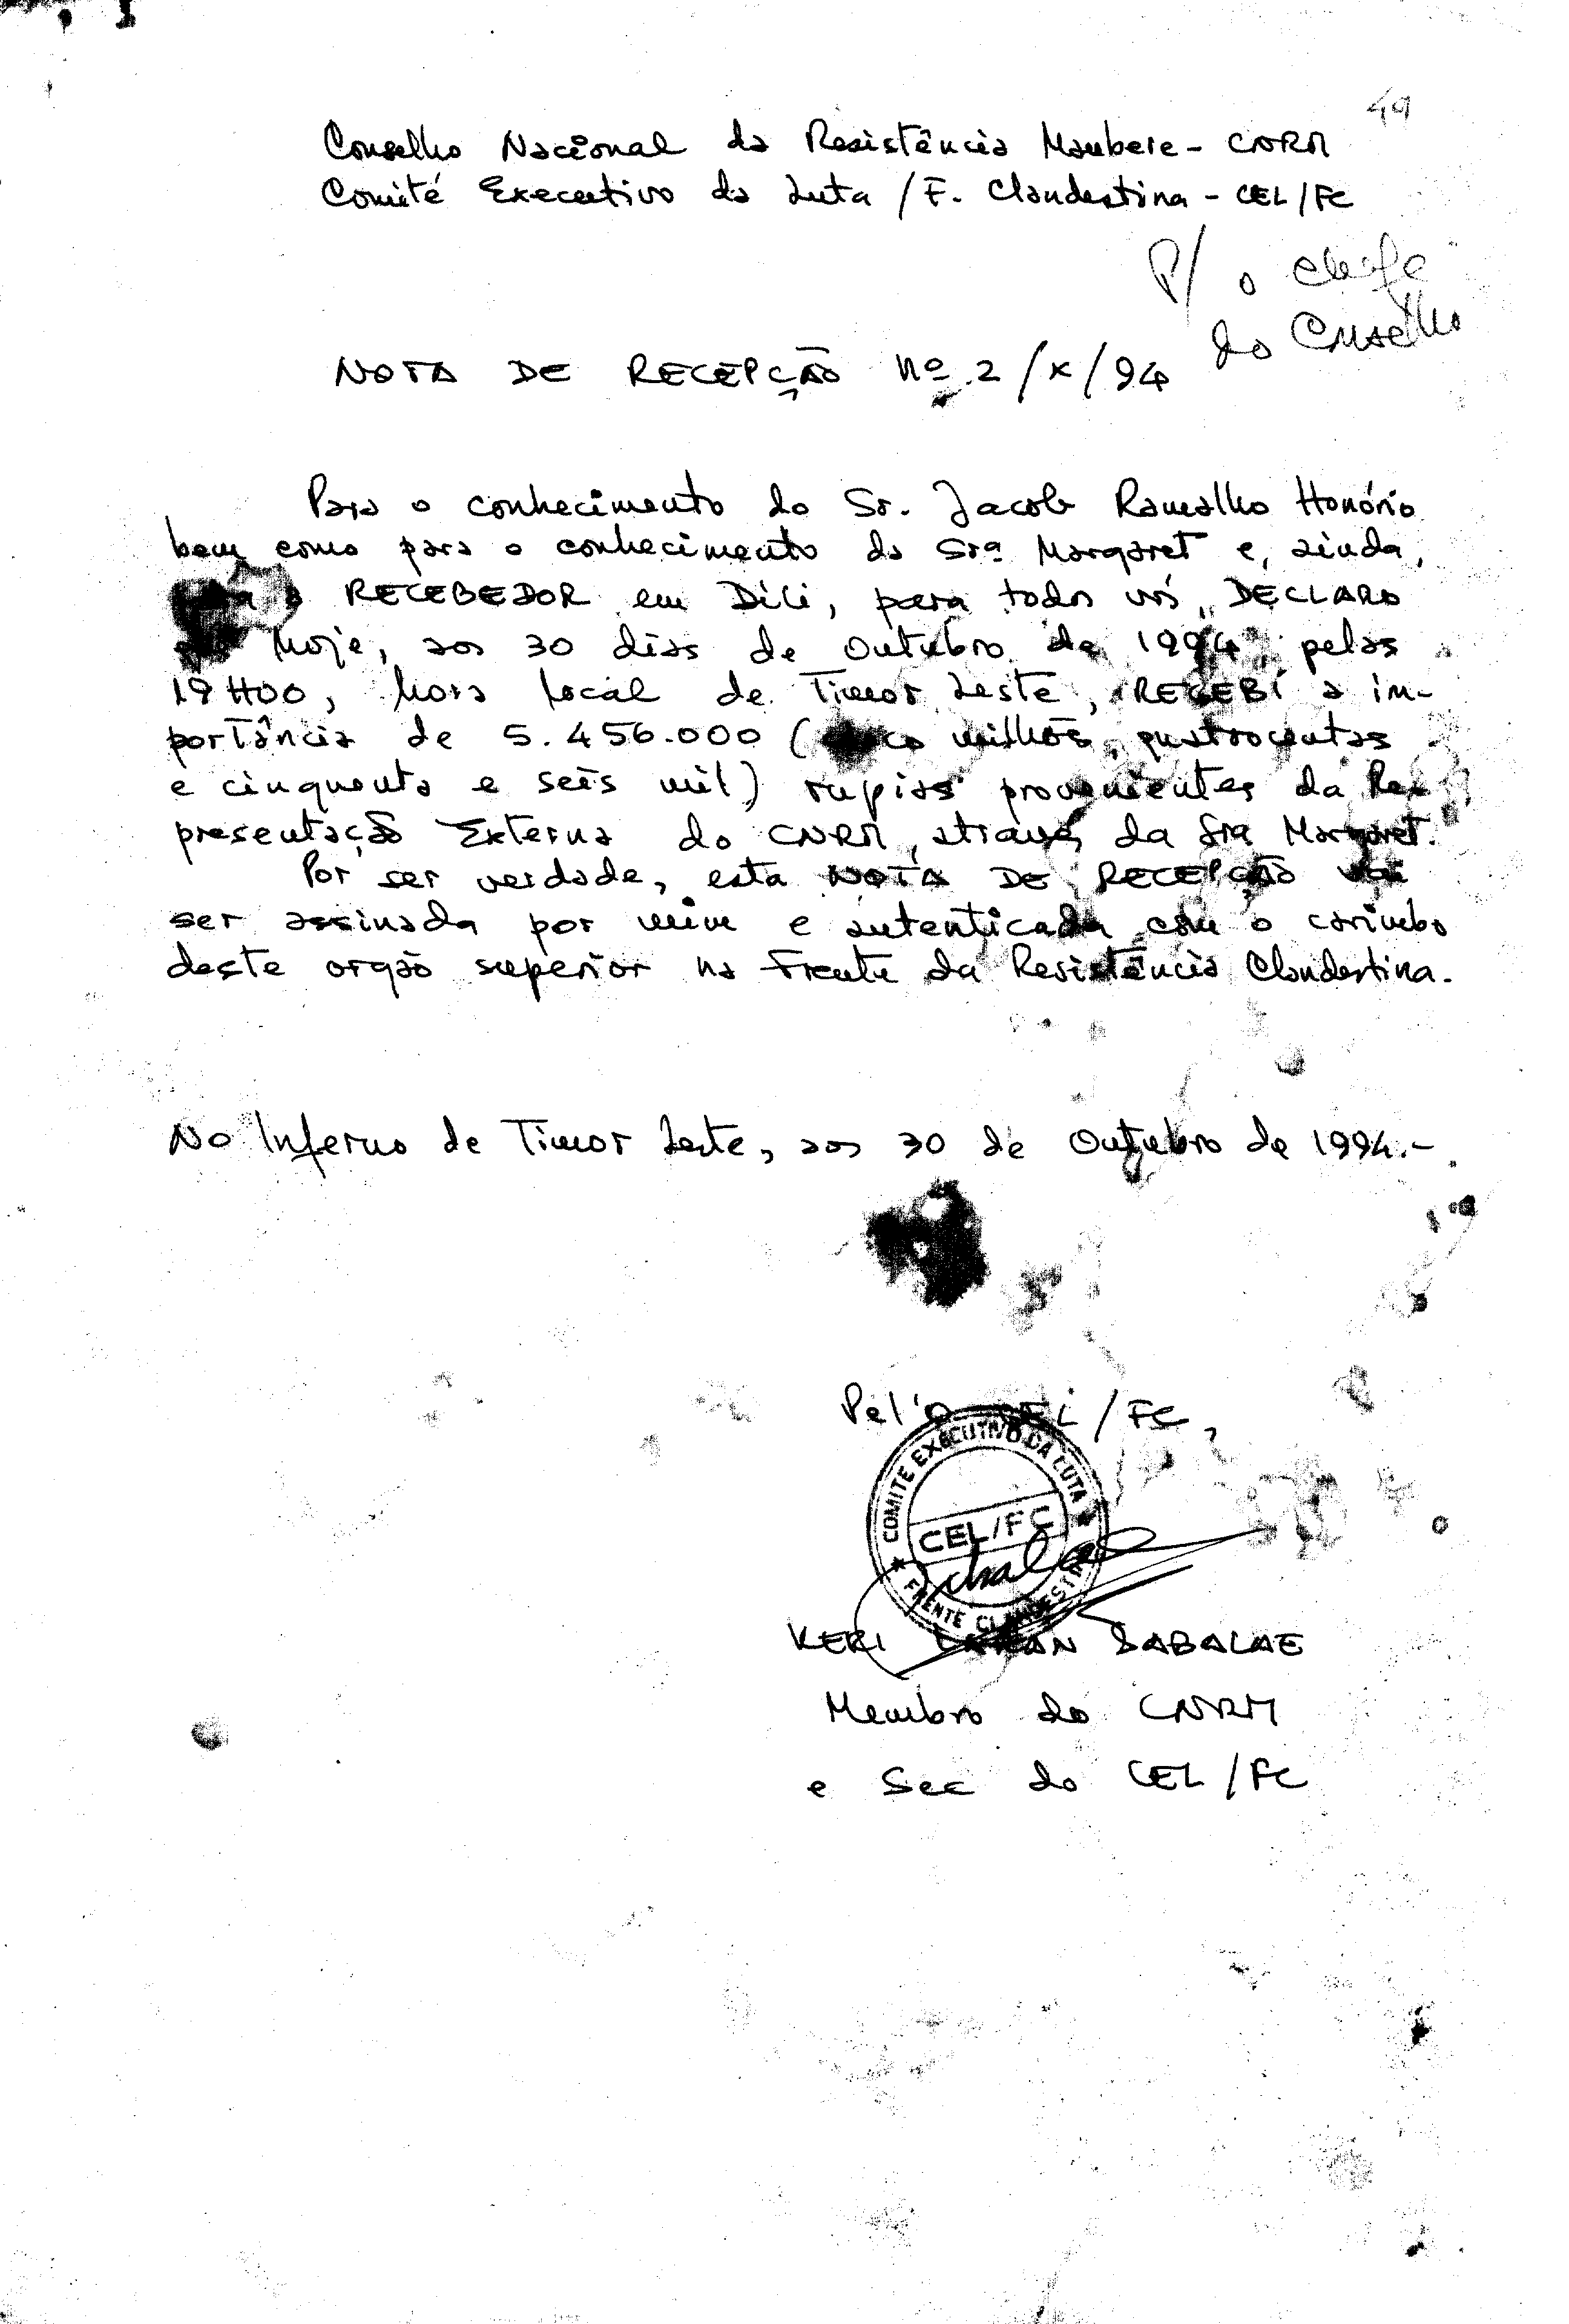 49
Conselho Nacional da Resistência Maubere - CNRM
Comité Executivo da Luta / F. Clandestina - CEL/FC
P/ o chefe
do Conselho
NOTA DE RECEPÇÃO nº 2/X/94
Para o conhecimento do Sr. Jacob Ramalho Honório
bem como para o conhecimento da Srª Margaret e, ainda,
RECEBEDOR em Dili, para todos vós, DECLARO
hoje, aos 30 dias de Outubro de 1994 pelas
19H00, hora local de Timor Leste, RECEBI a im-
portância de 5.456.000 (cinco milhões, quatrocentas
e cinquenta e seis mil) rupias provenientes da Re-
presentação Externa do CNRM, através da Sra Margaret.
Por ser verdade, esta NOTA DE RECEPÇÃO vai
ser assinada por mim e autenticada com o carimbo
deste orgão superior na Frente da Resistência Clandestina.
No Inferno de Timor Leste, aos 30 de Outubro de 1994.-
Pel'o CEL/FC,
COMITE EXECUTIVO DA LUTA
CEL/FC
FRENTE CLANDESTINA
KERI LARAN SABALAE
Membro do CNRM
e Sec do CEL/FC